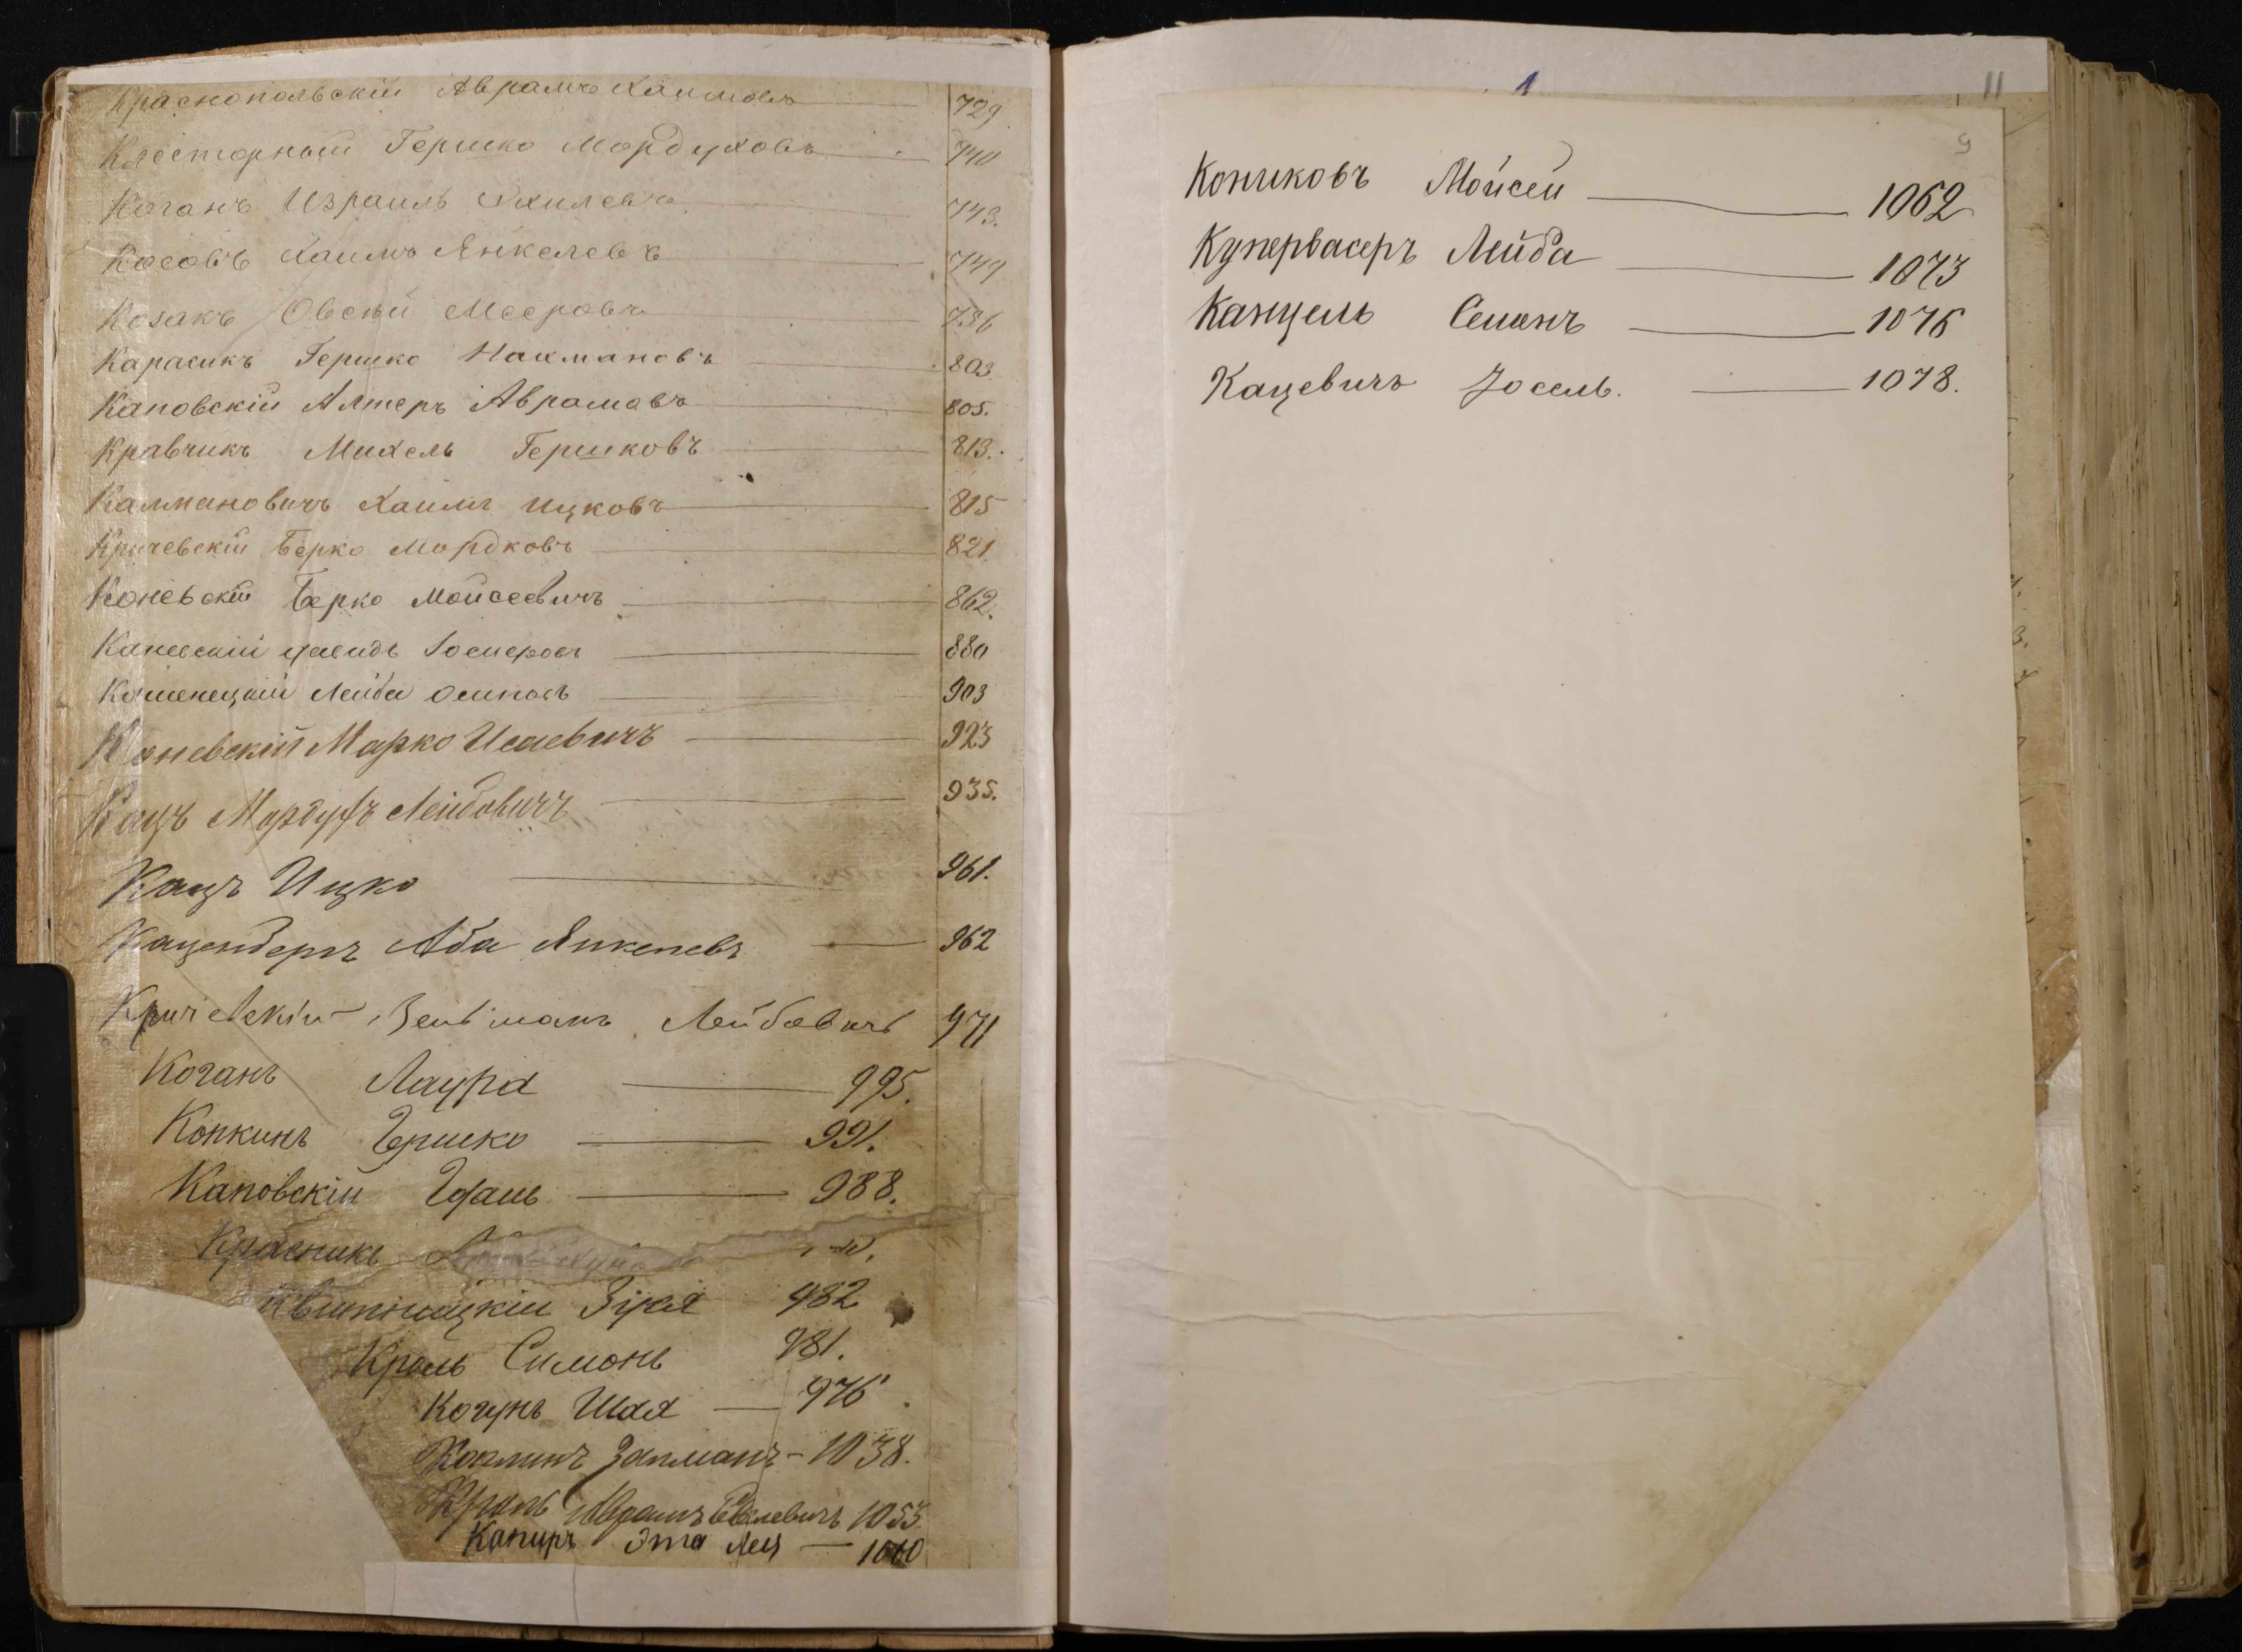 Краснопольскій Аврамъ Хаимовъ 729
Клесторный Гершко Мордуховъ 740
Коганъ Израиль Ихилевъ 743.
Косовъ Хаимъ Янкелевъ 749
Козакъ Овсѣй Мееровъ 786
Карасикъ Гершко Нахмановъ 803
Каповскій Алтеръ Аврамовъ 805.
Кравчикъ Михель Гершковъ 813.
Калмановичъ Хаимъ Ицковъ 815
Кричевскій Берко Мордковъ 821.
Коневскій Берко Мойсеевичъ 862.
Каневскій Давидъ 880
Каменецкій Лейба Осиповъ 903
Каневскій Марко Исаевичъ 923
Кацъ Мордухъ Лейбовичъ 935.
Кацъ Ицко 961.
Каценбергъ Аба Янкелевъ 962
Кричевскій Зельманъ Лейбовичъ 971
Коганъ Лаура 995.
Копкинъ Гершко 991.
Каповскій Идаль 988.
Красникъ
Квитницкій Зуся 982
Кроль Симонъ 981.
Когунъ Шая 976.
Козлинъ Залманъ - 1038.
Кроль Аврамъ 1053
Капиръ Эта Лея 1060
1
11
9
Кониковъ Мойсей 1062
Купервасеръ Лейба 1073
Канцель Семенъ 1076
Кацевичъ Іосель. 1078.